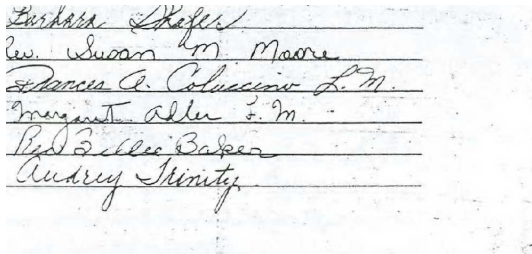 Barbara Shafer
Rev. Susan M Moore
Frances A. Coluccino L.M.
Margaret Adler L.M.
Rev Billie Baker
Audrey Trinity